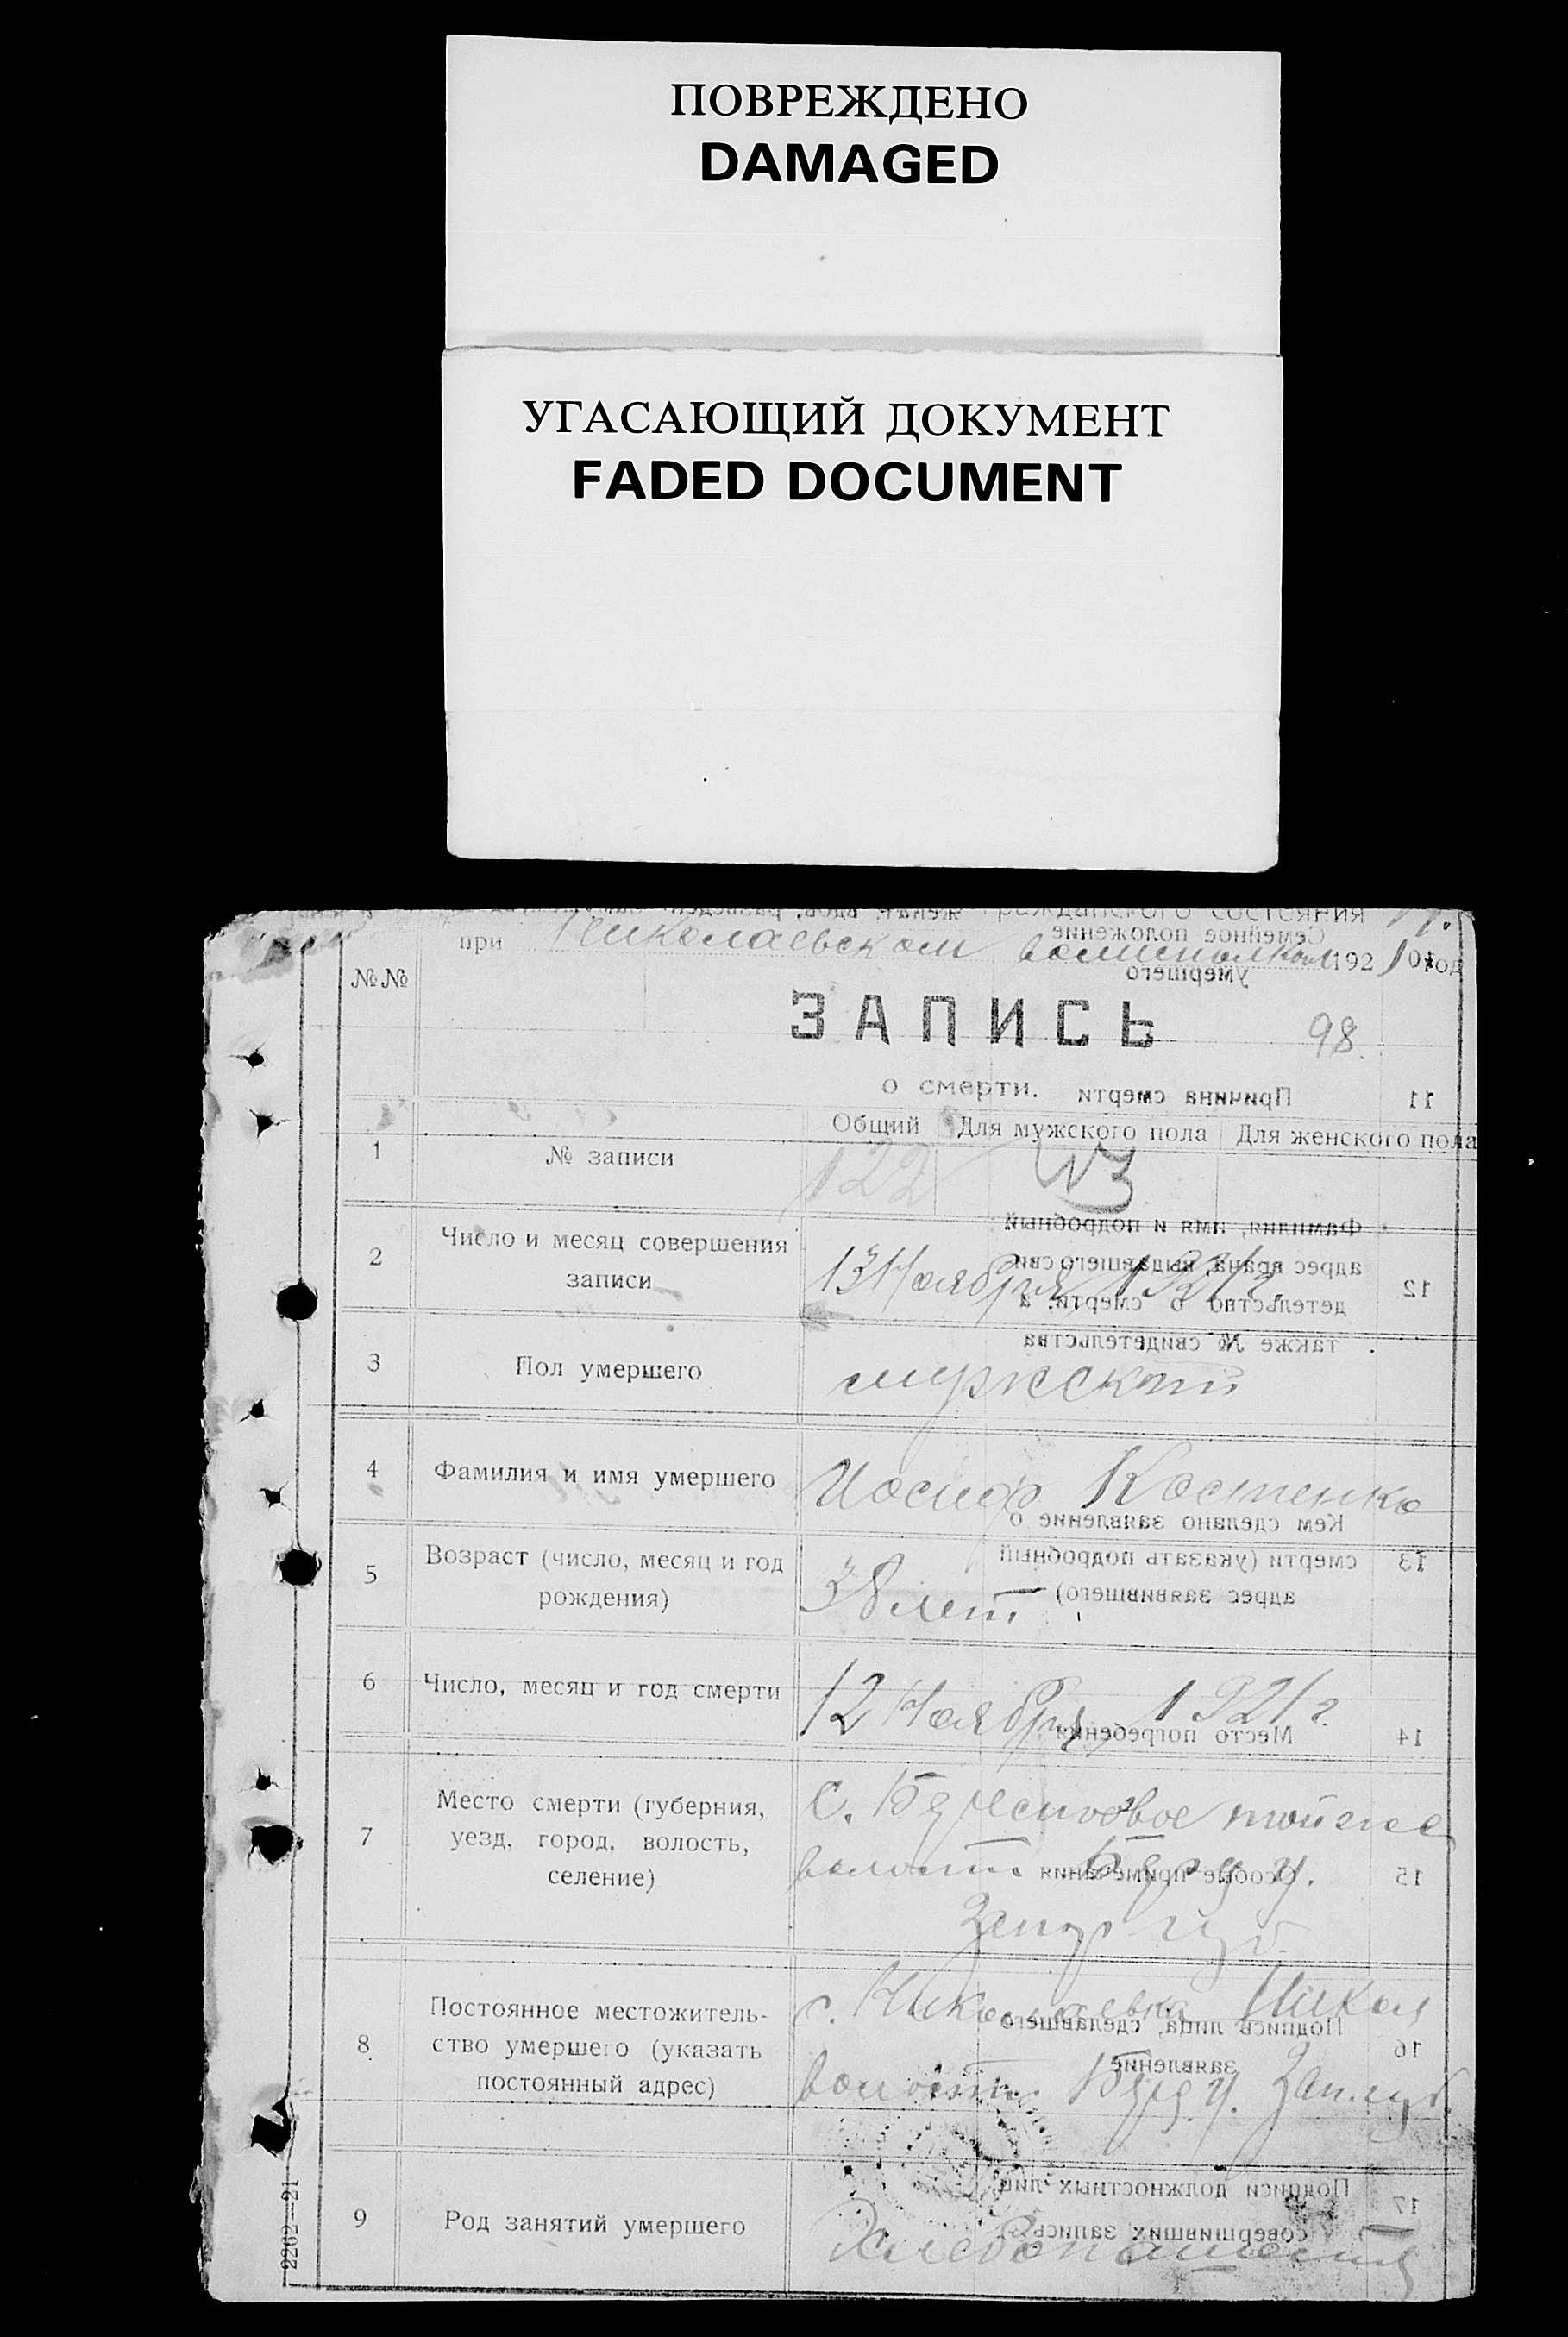 ПОВРЕЖДЕНО
DAMAGED
УГАСАЮЩИЙ ДОКУМЕНТ
FADED DOCUMENT
при Николаевском 1921 год
№№
ЗАПИСЬ
98
о смерти.
Причина смерти
11
Общий Для мужского пола Для женского пола
1 № записи 122
2 Число и месяц совершения записи
13 Ноября 1921 г.
Фамилия, имя и подробный
адрес врача, выдавшего сви
детельство о смерти, а
также № свидетельства
12
3 Пол умершего мужской
4 Фамилия и имя умершего Иосиф Костенко
Кем сделано заявление о
смерти (указать подробный
адрес заявившего)
13
5 Возраст (число, месяц и год
рождения)
38 лет
6 Число, месяц и год смерти 12 Ноября 1921 г.
Место погребения
14
7 Место смерти (губерния,
уезд, город, волость,
селение)
волости
Запор губ.
Особые примечания
15
8 Постоянное местожитель-
ство умершего (указать
постоянный адрес)
с. Николаевка Никол
волости Берд у. Зап. губ.
Подпись лица, сделавшего
заявление
16
9 Род занятий умершего
Подписи должностных лиц,
совершивших запись
17
2262—21